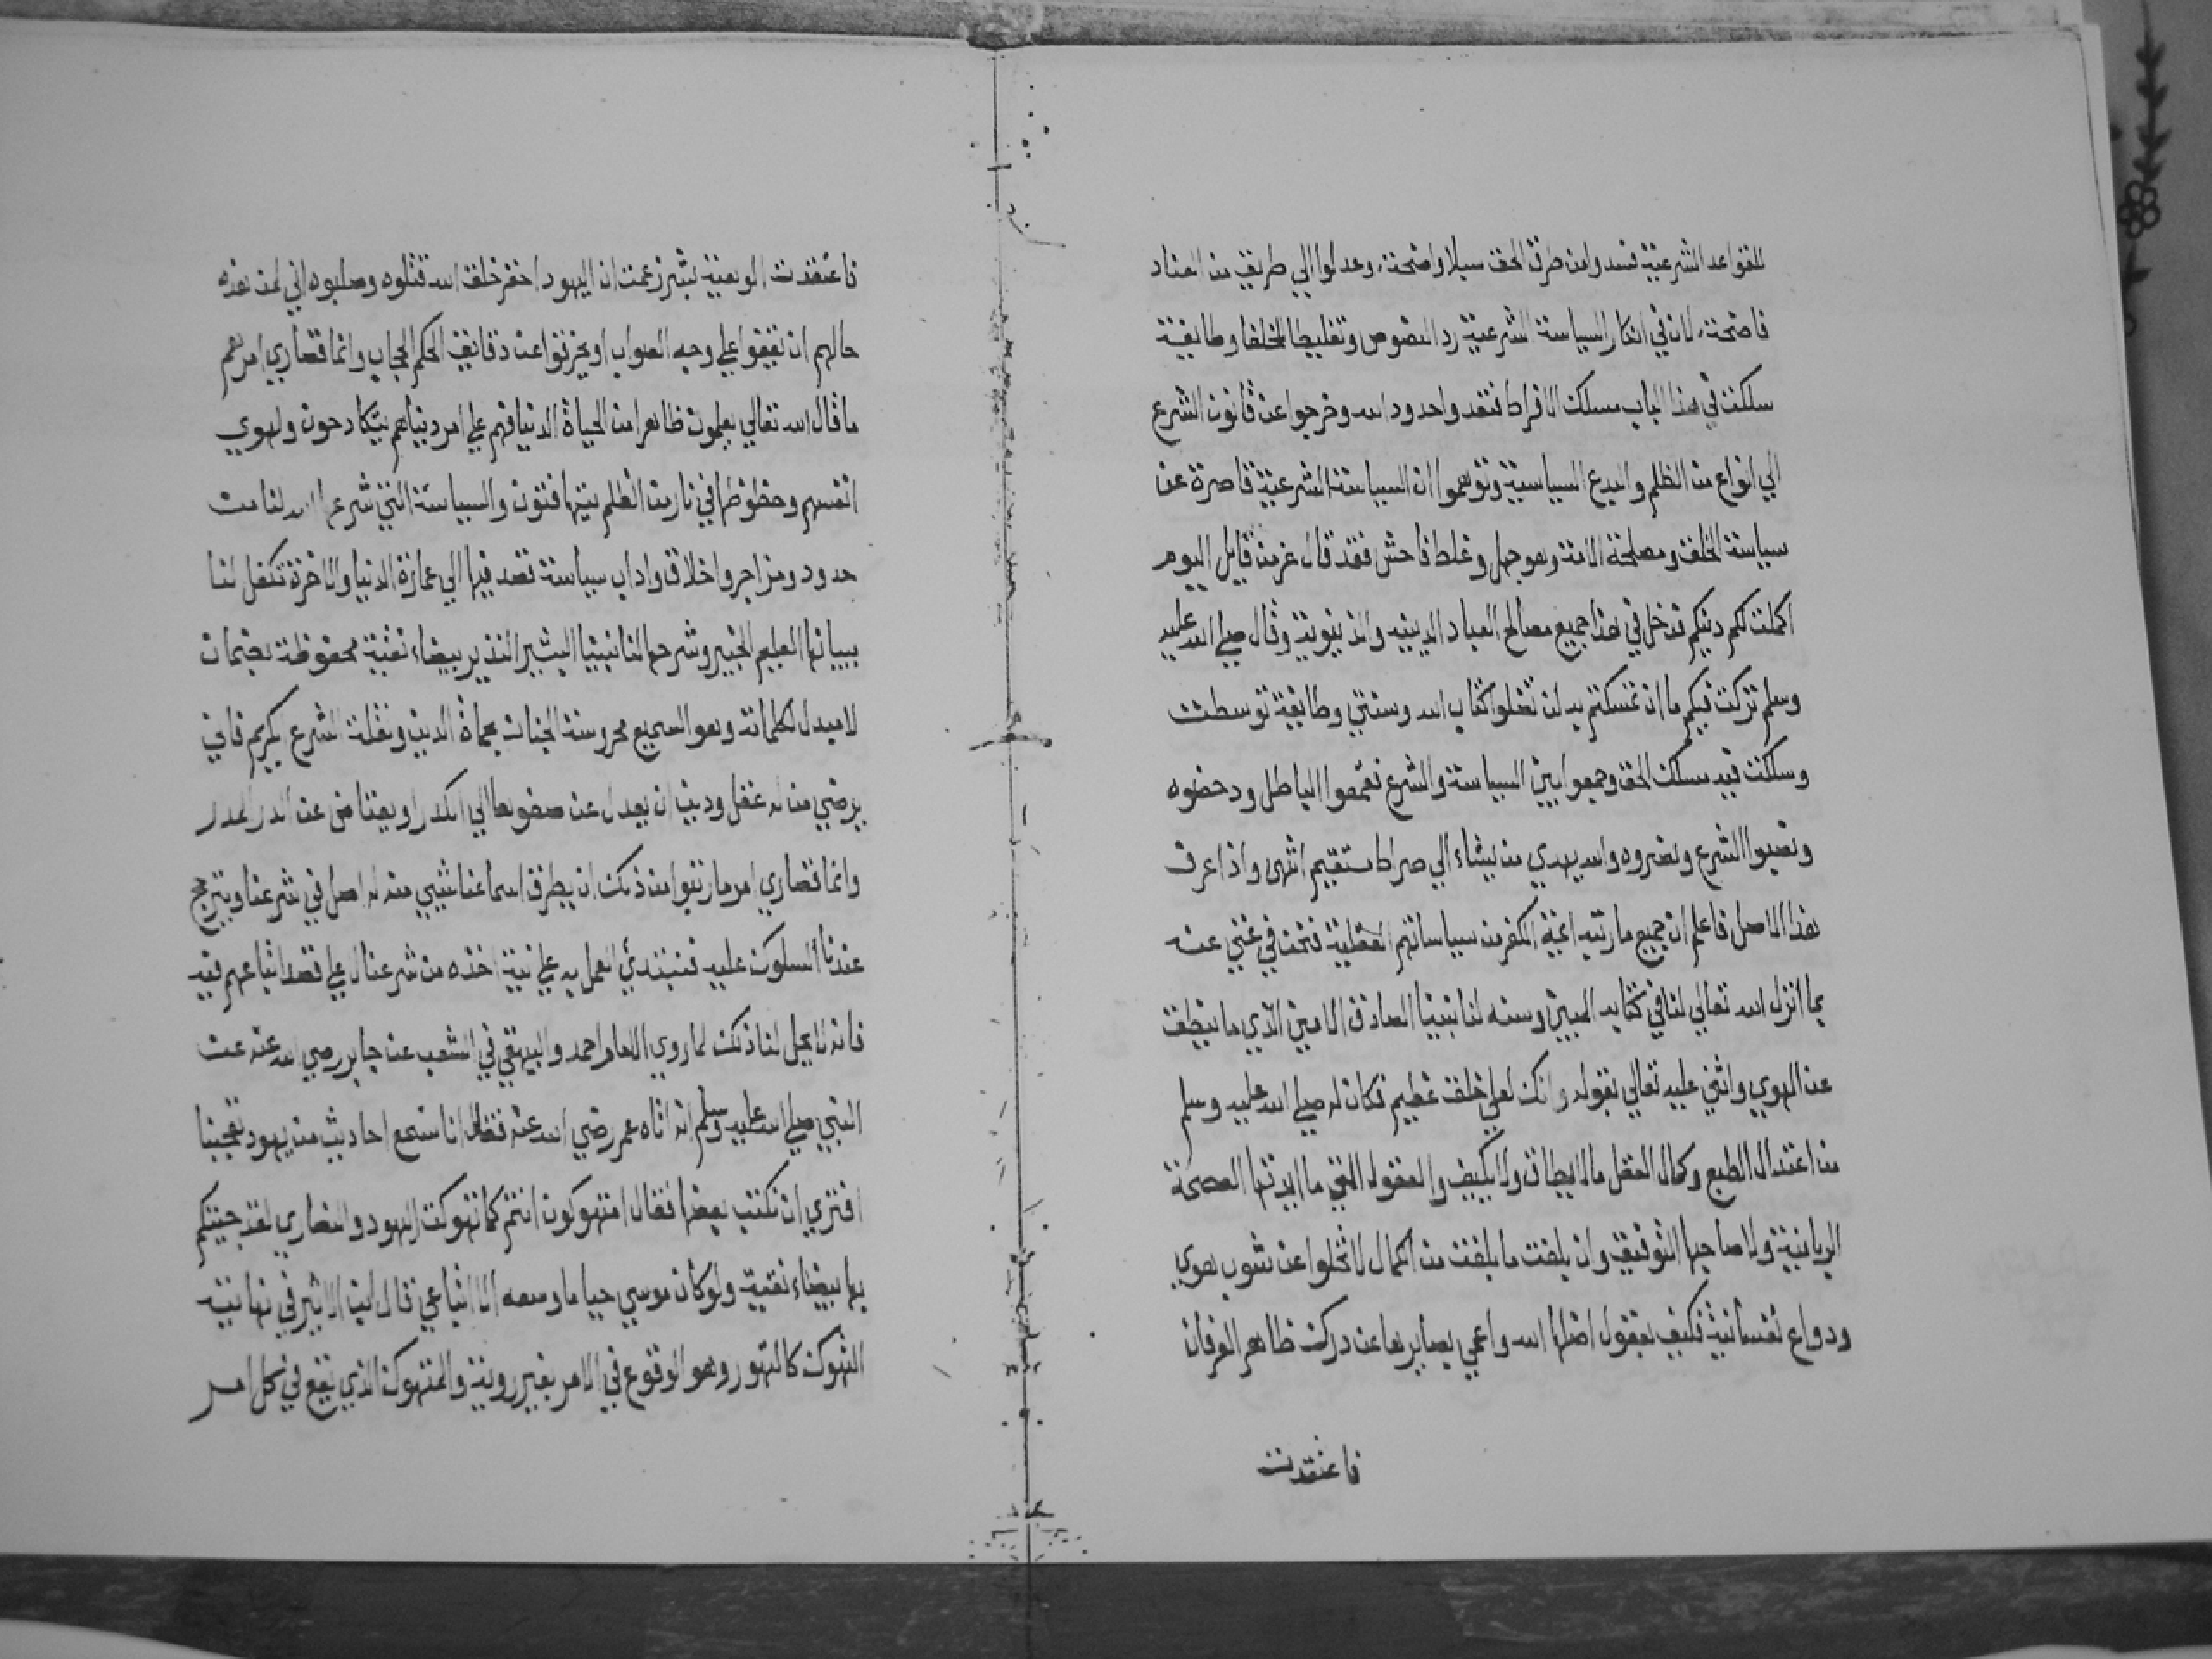 للقواعد الشرعية فسدوا من طرق الحق سبلا واضحة، وعدلوا الي طريق من العناد
فاضحة، لان في انكار السياسة الشرعية رد النصوص وتغليطا للخلفا وطايفة
سلكت في هذا الباب مسلك الافراط فتعدوا حدود الله وخرجوا عن قانون الشرع
الي انواع من الظلم والبدع السياسية وتوهموا ان السياسة الشرعية قاصرة عن
سياسة الخلق ومصلحة الامة وهو جهل وغلط فاحش فقد قال عز من قايل اليوم
اكملت لكم دينكم فدخل في هذا جميع مصالح العباد الدينيه والدنيوية وقال صلي الله عليه
وسلم تركت فيكم ما ان تمسكتم به لن تضلوا كتاب الله وسنتي وطايفة توسطت
وسلكت فيه مسلك الحق وجمعوا بين السياسة والشرع فقمعوا الباطل ودحضوه
ونصبوا الشرع ونصروه والله يهدي من يشاء الي صراط مستقيم انتهي واذا عرف
هذا الاصل فاعلم ان جميع ما رتبه ايمة الكفر من سياساتهم العقلية فنحن في غني عنه
بما انزل الله تعالي لنا في كتابه المبين وسنه لنا نبينا الصادق الامين الذي ما ينطق
عن الهوي واثني عليه تعالي بقوله وانك لعلي خلق عظيم فكان له صلي الله عليه وسلم
من اعتدال الطبع وكمال العقل ما لا يطاق ولا يكيف والعقول التي ما ايدتها العصمة
الربانية ولا صاحبها التوفيق وان بلغت ما بلغت من الكمال لا تخلوا عن شوب هوي
ودواع نفسانية فكيف بعقول اضلها الله واعمي بصايرها عن درك ظاهر العرفان
فاعتقدت
فاعتقدت الوهية بشر زعمت ان اليهود احقر خلق الله قتلوه وصلبوه اني لمن هذه
حالهم ان يقفوا علي وجه الصواب او يخرقوا عن دقائق الحكم الحجاب وانما قصاري امرهم
ما قال الله تعالي يعلمون ظاهرا من الحياة الدنيا فهم علي امر دنياهم يتكادحون ولهوي
انفسهم وحظوظها في نار من الظلم يتهافتون والسياسة التي شرعها الله لنا من
حدود ومزاجر واخلاق واداب سياسة قصد فيها الي عمارة الدنيا والاخرة تكفل لنا
ببيانها العليم الخبير وشرحها لنا نبينا البشير النذير بيضاء نقية محفوظة بضمان
لا مبدل لكلماته وهو السميع محروسة الجناب بحماة الدين ونقلة الشرع الكريم فاني
يرضي من له عقل ودين ان يعدل عن صفوها الي الكدر ويعتاض عن الدر المدر
وانما قصاري امر ما رتبوا من ذلك ان يطرق اسماعنا شيي منه له اصل في شرعنا ويترجح
عندنا السلوك عليه فنبتدي العمل به علي نية اخذه من شرعنا لا علي قصد اتباعهم فيه
فانه لا يحل لنا ذلك لما روي الامام احمد والبيهقي في الشعب عن جابر رضي الله عنه عن
النبي صلي الله عليه وسلم انه اتاه عمر رضي الله عنه فقال انا نسمع احاديث من يهود تعجبنا
افتري ان نكتب بعضها فقال امتهوكون انتم كما تهوكت اليهود والنصاري لقد جيتكم
بها بيضاء نقية ولو كان موسي حيا ما وسعه الا اتباعي قال ابن الاثير في نهايته
التهوك كالتهور وهو الوقوع في الامر بغير روية والمتهوك الذي يقع في كل امر